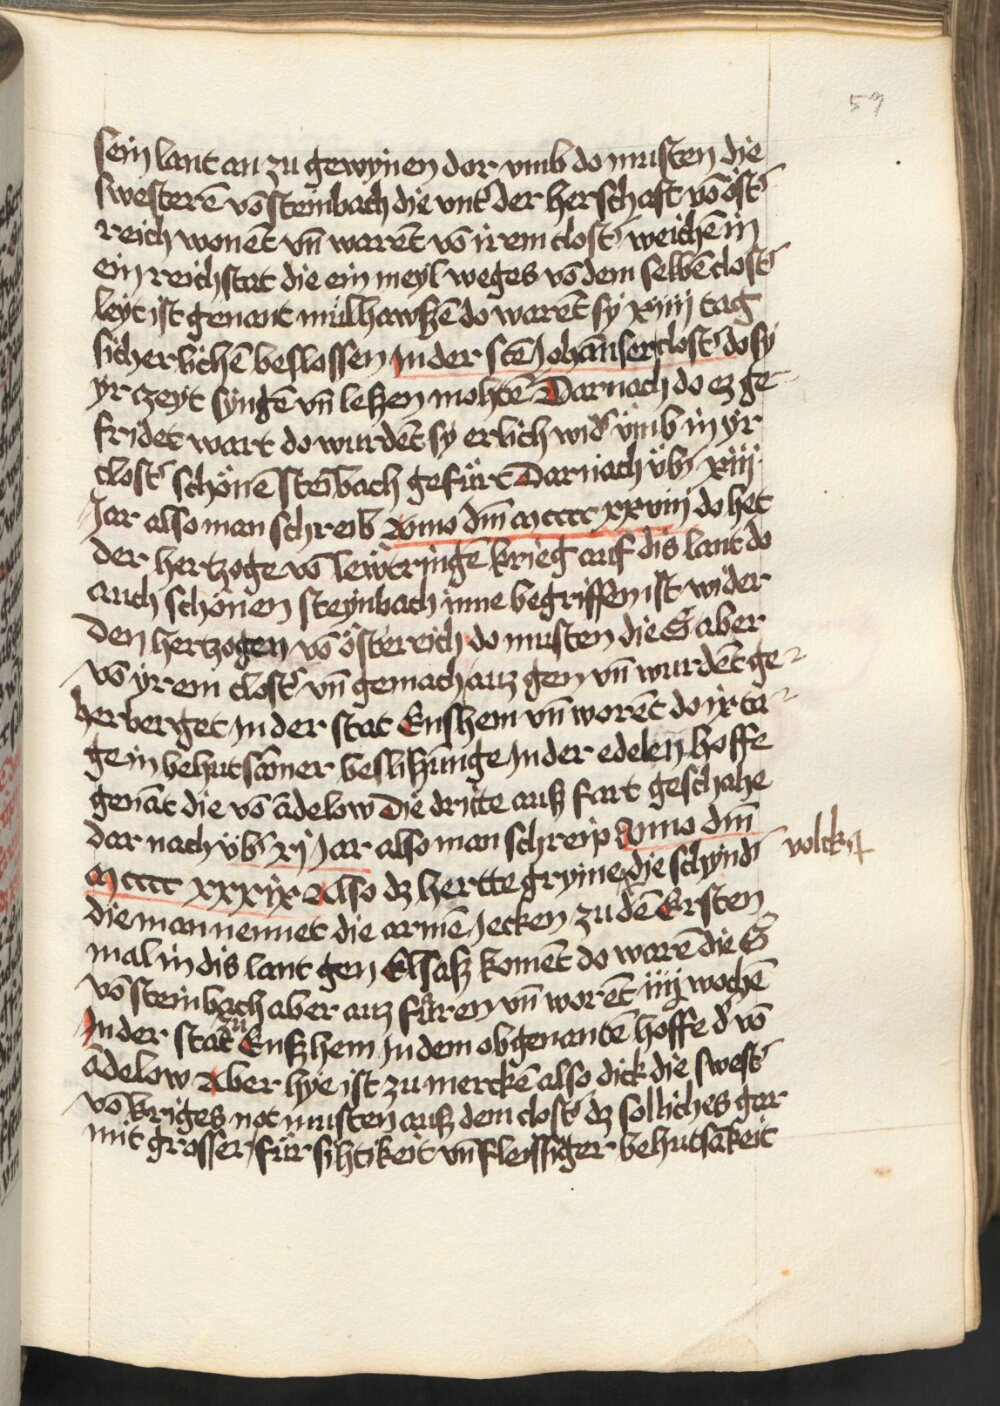 59
sein lant an zu gewynen dor vmb do musten die
swesterē vō steinbach die vnt' der herschaft vō öst'
reich wonēt vn̄ warēt vō irem clost' weichē in
ein reichstat die ein meyl weges vō dem selbē clost'
leyt ist genant mülhawszē do warēt sy xiiij tag
sicherlichē beslossen In der sct̄e Johānser clost' do sy
yr czeyt syngē vn̄ leszen mohtē Darnach do ez ge
fridet wart do wurdēt sy erlich wid' vmb in yr
clost' schönē stēbach gefürt Darnach vb' xiij
Jar also man schreib Anno dm̄ mcccc xxviij do het
der hertzoge vō lewtringē krieg auf dis lant do
auch schönen steynbach inne begriffen ist wider
den hertzogen vō österreich do musten die S aber
vō yrem clost' vn̄ gemach auz gen vn̄ wurdēt ge
herberget In der stat Enshem vn̄ worēt do ix ta
ge in behutsāmer beslißunge In der edelen hoffe
genāt die vō ādelow Die dritte ausz fart geschahe
dar nach vb' xj Jar also man schreip Anno dm̄
mcccc xxxix Also dz hertte grymme die schynd'
volck
die man nennet die armē Jecken zu dē Ersten
mal in dis lant gen Elsasz komēt do warē die S
vō steinbach aber auz füren vn̄ worēt iiij wochē
In der stat zu Enszhem In dem obgenantē hoffe d' vō
ādelow Aber hye ist zu merckē also dick die swest'
vō kriges not musten ausz dem clost' dz solliches gar
mit grosser fürsihtikeit vn̄ fleissiger behutsākeit